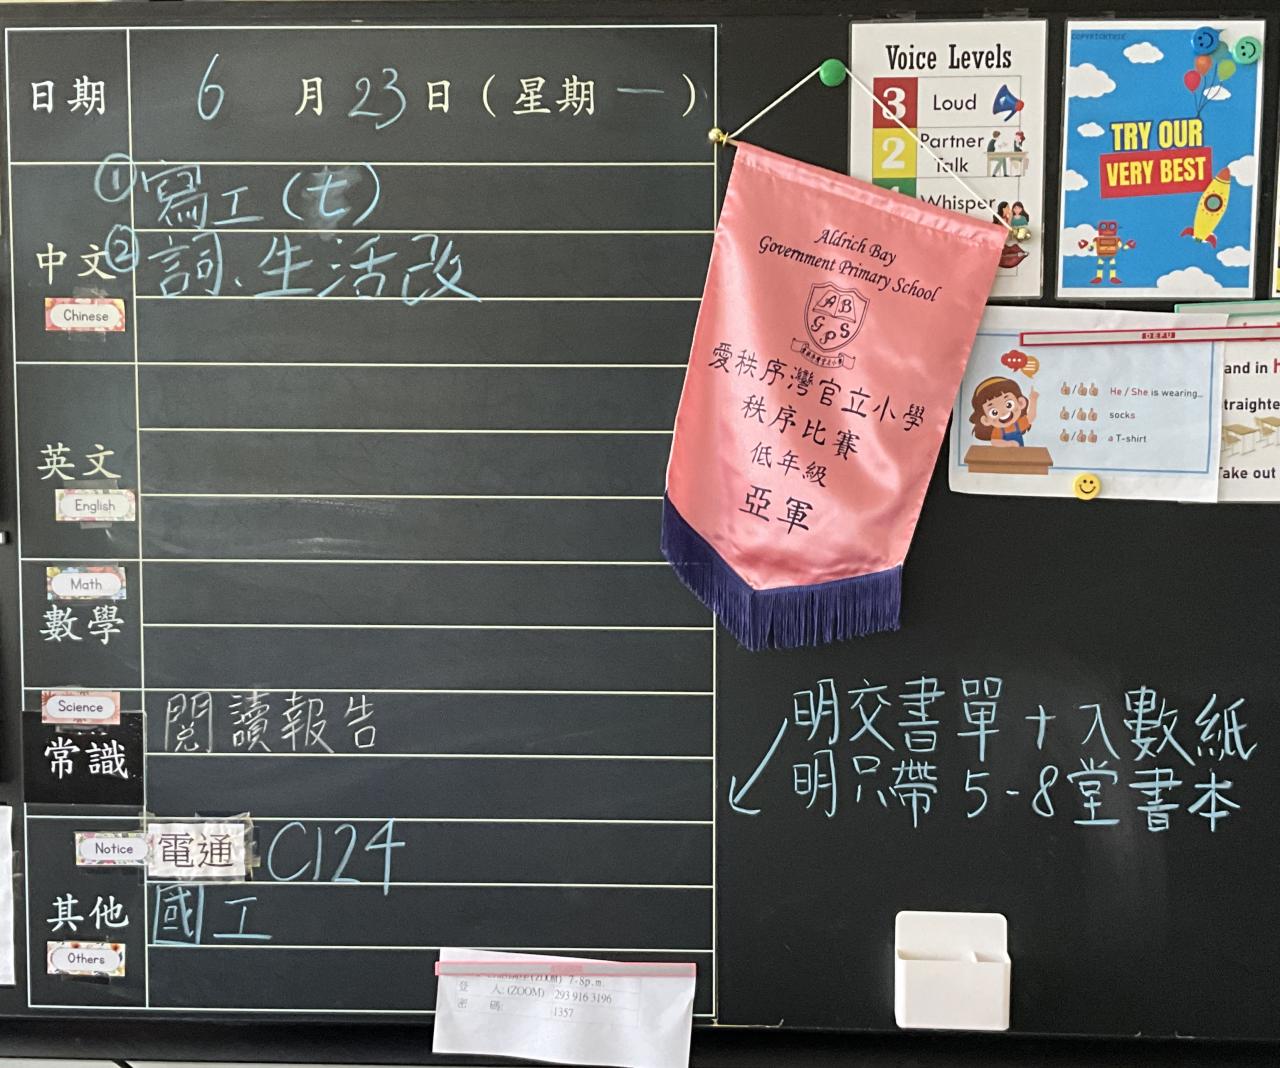 日期 6 月 23 日 ( 星期 一 )
中文
Chinese
① 寫工 (七)
② 詞、生活改
英文
English
Math
數學
Science
常識
閱讀報告
Notice
電通 C124
其他
Others
國工
(ZOOM) 7-8p.m.
登 人: (ZOOM) 293 916 3196
密 碼: 1357
Aldrich Bay
Government Primary School
A B
G S
P
愛秩序灣官立小學
秩序比賽
低年級
亞軍
Voice Levels
3 Loud
2 Partner Talk
Whisper
TRY OUR
VERY BEST
DEFU
He / She is wearing...
socks
a T-shirt
and in
Take out
明交書單+入數紙
明只帶 5-8堂書本